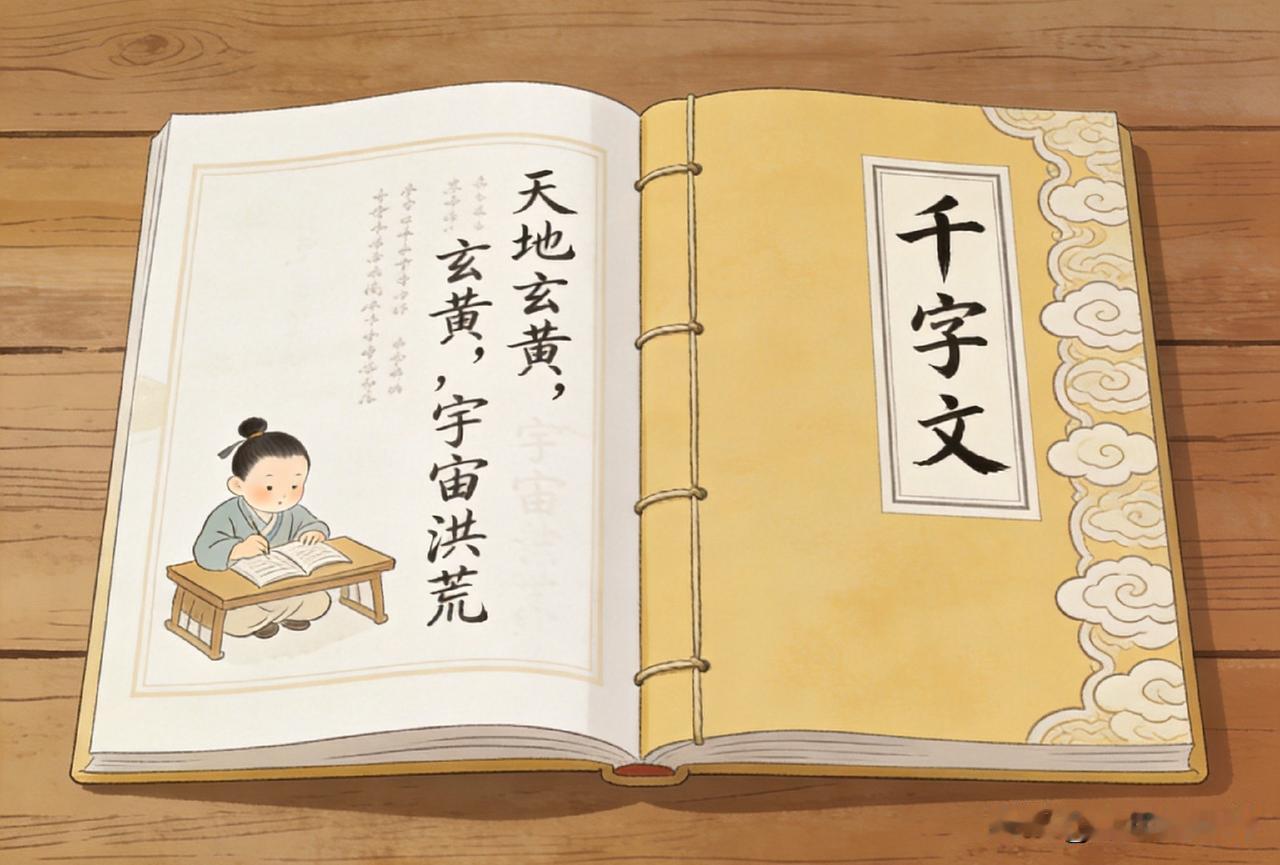 千字文
天地玄黄，
玄黄，，宇宙洪荒
宇宙